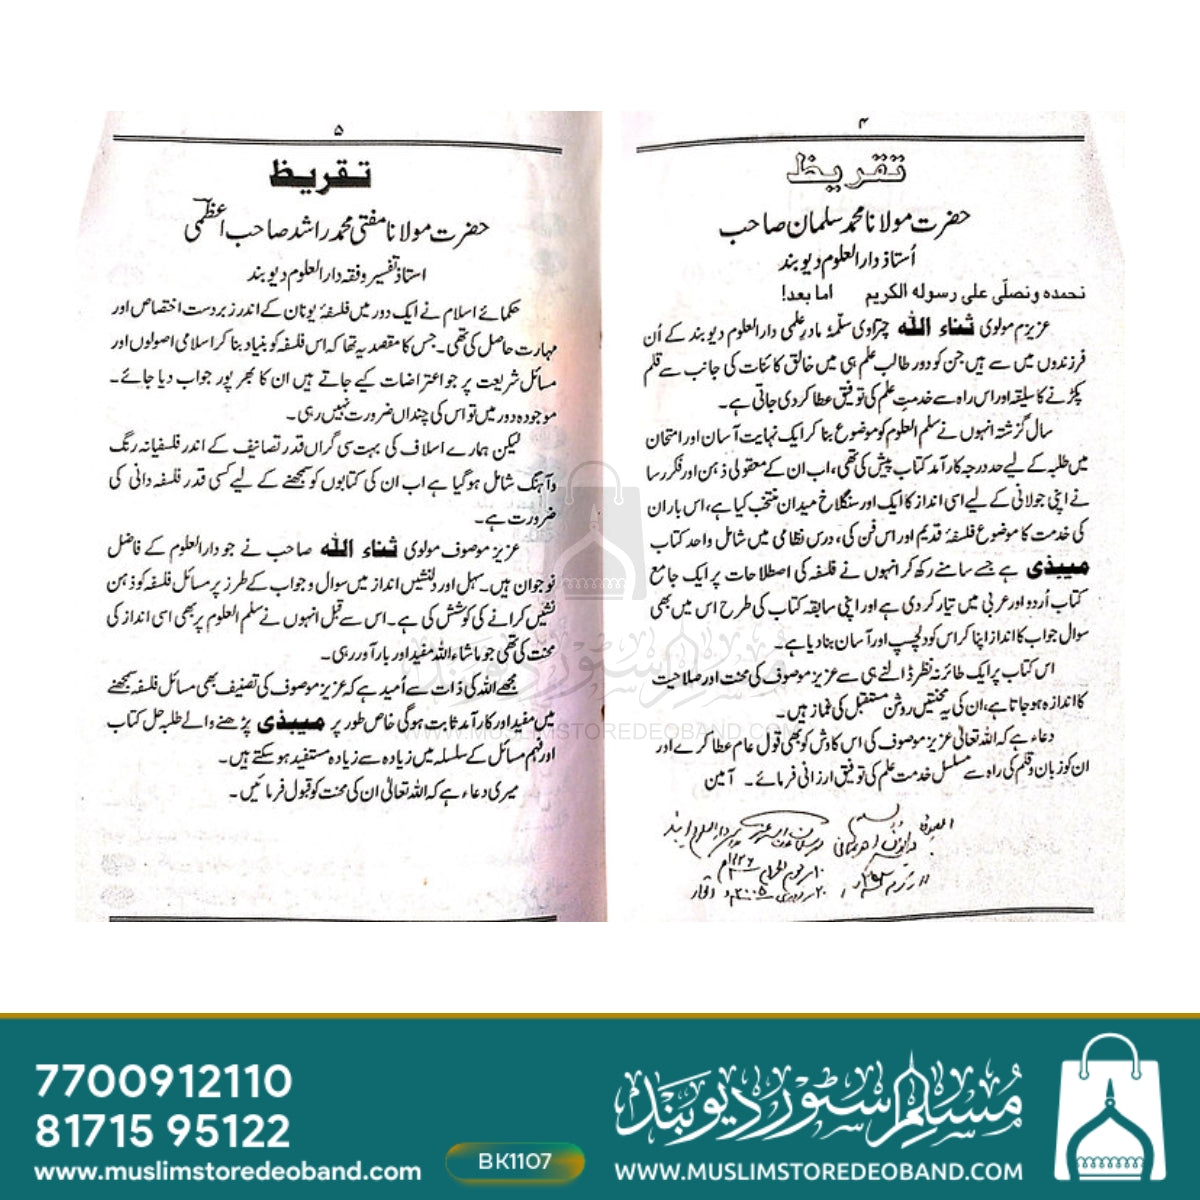 ۴
تقریظ
حضرت مولانا محمد سلمان صاحب
اُستاذ دارالعلوم دیوبند
نحمدہ ونصلّی علی رسولہ الکریم اما بعد!
عزیزم مولوی ثناء اللہ چتراوی سلّمہٗ مادرِعلمی دارالعلوم دیوبند کے اُن
فرزندوں میں سے ہیں جن کو دور طالب علم ہی میں خالق کائنات کی جانب سے قلم
پکڑنے کا سلیقہ اور اس راہ سے خدمتِ علم کی توفیق عطا کردی جاتی ہے۔
سال گزشتہ انہوں نے سلم العلوم کو موضوع بنا کر ایک نہایت آسان اور امتحان
میں طلبہ کے لیے حد درجہ کار آمد کتاب پیش کی تھی، اب ان کے معقولی ذہن اور فکر رسا
نے اپنی جولانی کے لیے اسی انداز کا ایک اور سنگلاخ میدان منتخب کیا ہے، اس بار ان
کی خدمت کا موضوع فلسفۂ قدیم اور اس فن کی، درس نظامی میں شامل واحد کتاب
میبذی ہے جسے سامنے رکھ کر انہوں نے فلسفہ کی اصطلاحات پر ایک جامع
کتاب اُردو اور عربی میں تیار کر دی ہے اور اپنی سابقہ کتاب کی طرح اس میں بھی
سوال جواب کا انداز اپنا کر اس کو دلچسپ اور آسان بنا دیا ہے۔
اس کتاب پر ایک طائرانہ نظر ڈالنے ہی سے عزیز موصوف کی محنت اور صلاحیت
کا اندازہ ہو جاتا ہے، ان کی یہ محنتیں روشن مستقبل کی غماز ہیں۔
دعاء ہے کہ اللہ تعالیٰ عزیز موصوف کی اس کاوش کو بھی قبول عام عطا کرے اور
ان کو زبان و قلم کی راہ سے مسلسل خدمت علم کی توفیق ارزانی فرمائے۔ آمین
۵
تقریظ
حضرت مولانا مفتی محمد راشد صاحب اعظمی
استاذ تفسیر وفقہ دارالعلوم دیوبند
حکمائے اسلام نے ایک دور میں فلسفۂ یونان کے اندر زبردست اختصاص اور
مہارت حاصل کی تھی۔ جس کا مقصد یہ تھا کہ اس فلسفہ کو بنیاد بنا کر اسلامی اصولوں اور
مسائل شریعت پر جو اعتراضات کیے جاتے ہیں ان کا بھر پور جواب دیا جائے۔
موجودہ دور میں تو اس کی چنداں ضرورت نہیں رہی۔
لیکن ہمارے اسلاف کی بہت سی گراں قدر تصانیف کے اندر فلسفیانہ رنگ
وآہنگ شامل ہو گیا ہے اب ان کی کتابوں کو سمجھنے کے لیے کسی قدر فلسفہ دانی کی
ضرورت ہے۔
عزیز موصوف مولوی ثناء اللہ صاحب نے جو دارالعلوم کے فاضل
نوجوان ہیں۔ سہل اور دلنشیں انداز میں سوال و جواب کے طرز پر مسائل فلسفہ کو ذہن
نشیں کرانے کی کوشش کی ہے۔ اس سے قبل انہوں نے سلم العلوم پر بھی اسی انداز کی
محنت کی تھی جو ماشاءاللہ مفید اور بار آور رہی۔
مجھے اللہ کی ذات سے اُمید ہے کہ عزیز موصوف کی تصنیف بھی مسائل فلسفہ سمجھنے
میں مفید اور کار آمد ثابت ہوگی خاص طور پر میبذی پڑھنے والے طلبہ حل کتاب
اور فہم مسائل کے سلسلہ میں زیادہ سے زیادہ مستفید ہو سکتے ہیں۔
میری دعاء ہے کہ اللہ تعالیٰ ان کی محنت کو قبول فرمائیں۔
مسلم سٹور دیوبند
WWW.MUSLIMSTOREDEOBAND.COM
7700912110
81715 95122
www.muslimstoredeoband.com
BK1107
مسلم سٹور دیوبند
WWW.MUSLIMSTOREDEOBAND.COM